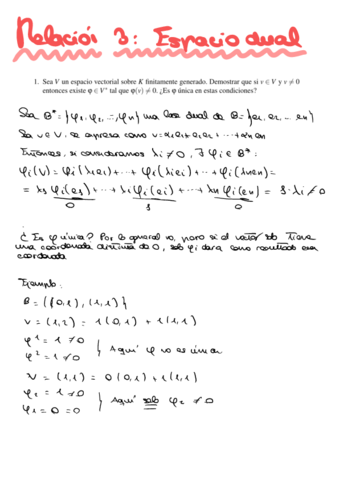 Relació 3: Espacio dual
1. Sea V un espacio vectorial sobre K finitamente generado. Demostrar que si v ∈ V y v ≠ 0
entonces existe φ ∈ V* tal que φ(v) ≠ 0. ¿Es φ única en estas condiciones?
Sea B* = {φ1, φ2, ..., φn} una base dual de B = {e1, e2, ... en}
Sea v ∈ V, se expresa como v =
Entonces, si consideramos λi ≠ 0, ∃ φi ∈ B*:
φi(v) = φi(λ1e1) + ... + φi(λiei) + ... + φi(λnen) =
= λ1 φi(e1) + ... + λi φi(ei) + ... + λn φi(en) = 1·λi ≠ 0
0 1 0
¿Es única? Por lo general no, pero si el vector solo tiene
una coordenada distinta de 0, solo φi dará como resultado esa
coordenada
Ejemplo:
B = {(0,1), (1,1)}
v = (1,2) = 1(0,1) + 1(1,1)
φ1 = 1 ≠ 0
φ2 = 1 ≠ 0 } Aquí φ no es única
v = (1,1) = 0(0,1) + 1(1,1)
φ2 = 1 ≠ 0
φ1 = 0 = 0 } Aquí solo φ2 ≠ 0